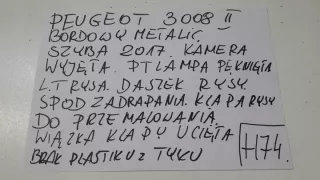 PEUGEOT 3008 II
BORDOWY METALIC
SZYBA 2017. KAMERA
WYJĘTA. PT LAMPA PĘKNIĘTA
L.T RYSA. DASZEK RYSY.
SPÓD ZADRAPANA. KLAPA RYSY
DO PRZEMALOWANIA.
WIĄZKA KLAPY UCIĘTA
BRAK PLASTIKU Z TYŁU
H74.